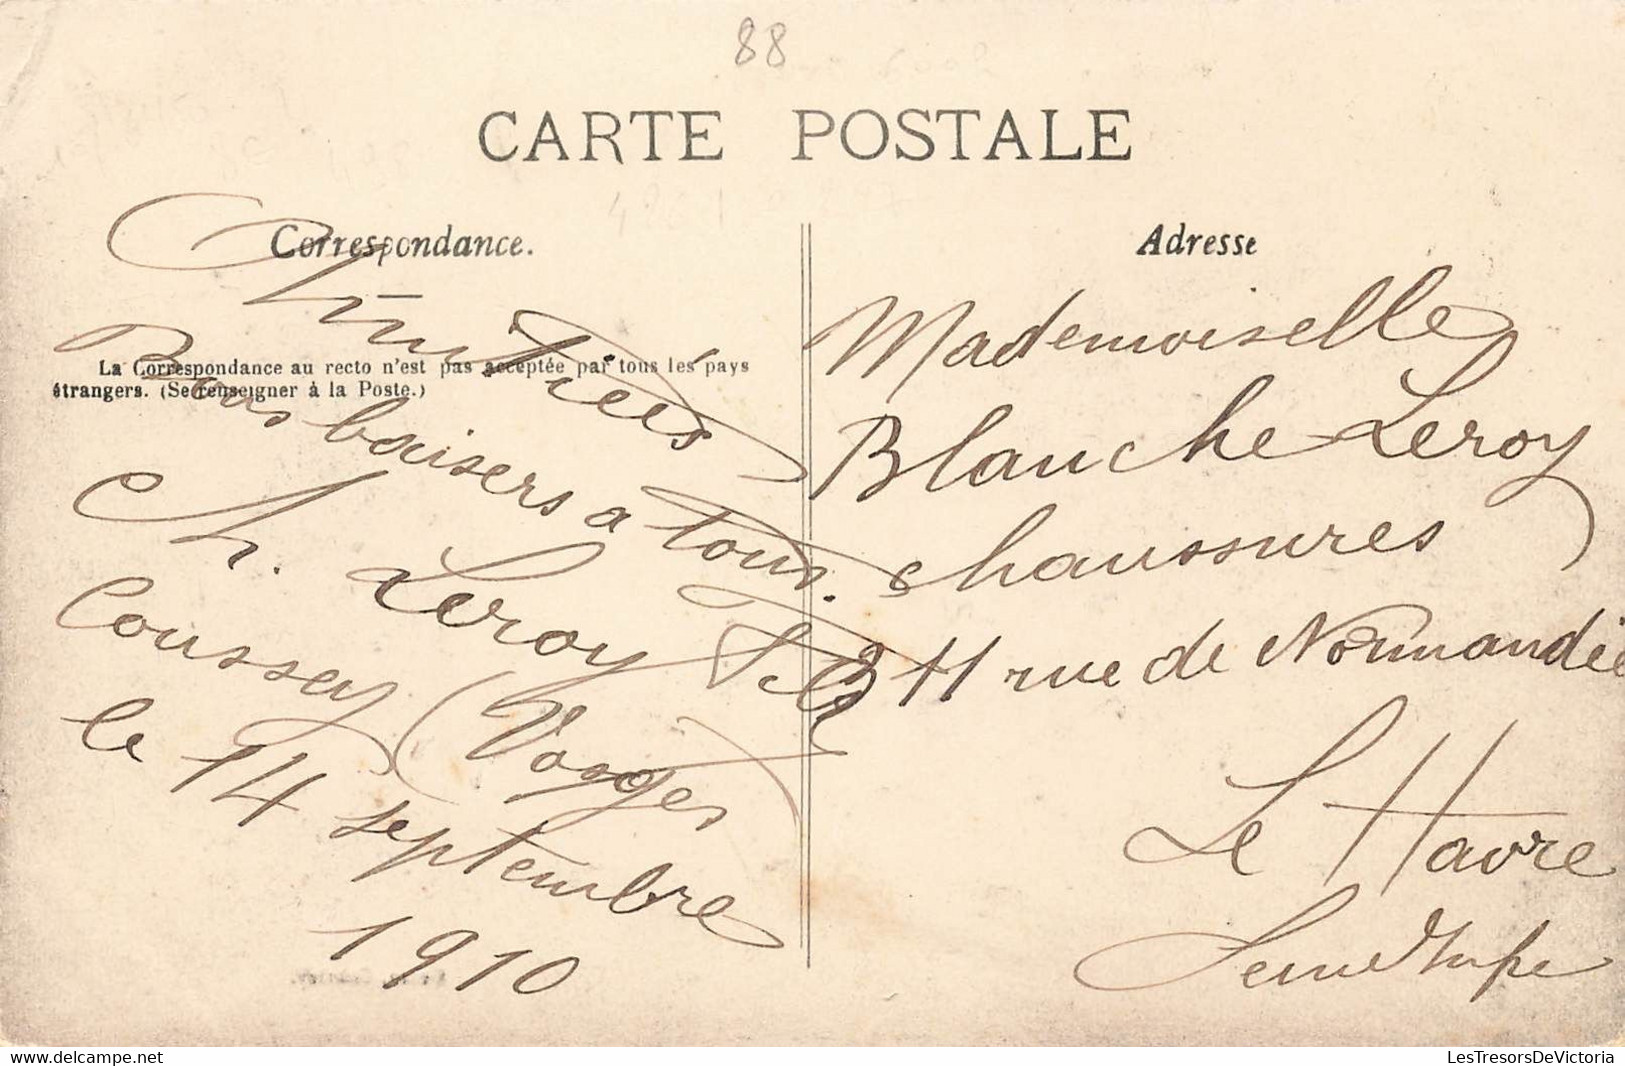 88
CARTE POSTALE
Correspondance.
La Correspondance au recto n'est pas acceptée par tous les pays
étrangers. (Se renseigner à la Poste.)
Amitiées
Bons baisers a tous.
Ch. Leroy Fils
Coussey (Vosges
le 14 septembre
1910
Adresse
Mademoiselle
Blanche Leroy
chaussures
11 rue de Normandie
Le Havre
Seine Infre
LesTresorsDeVictoria